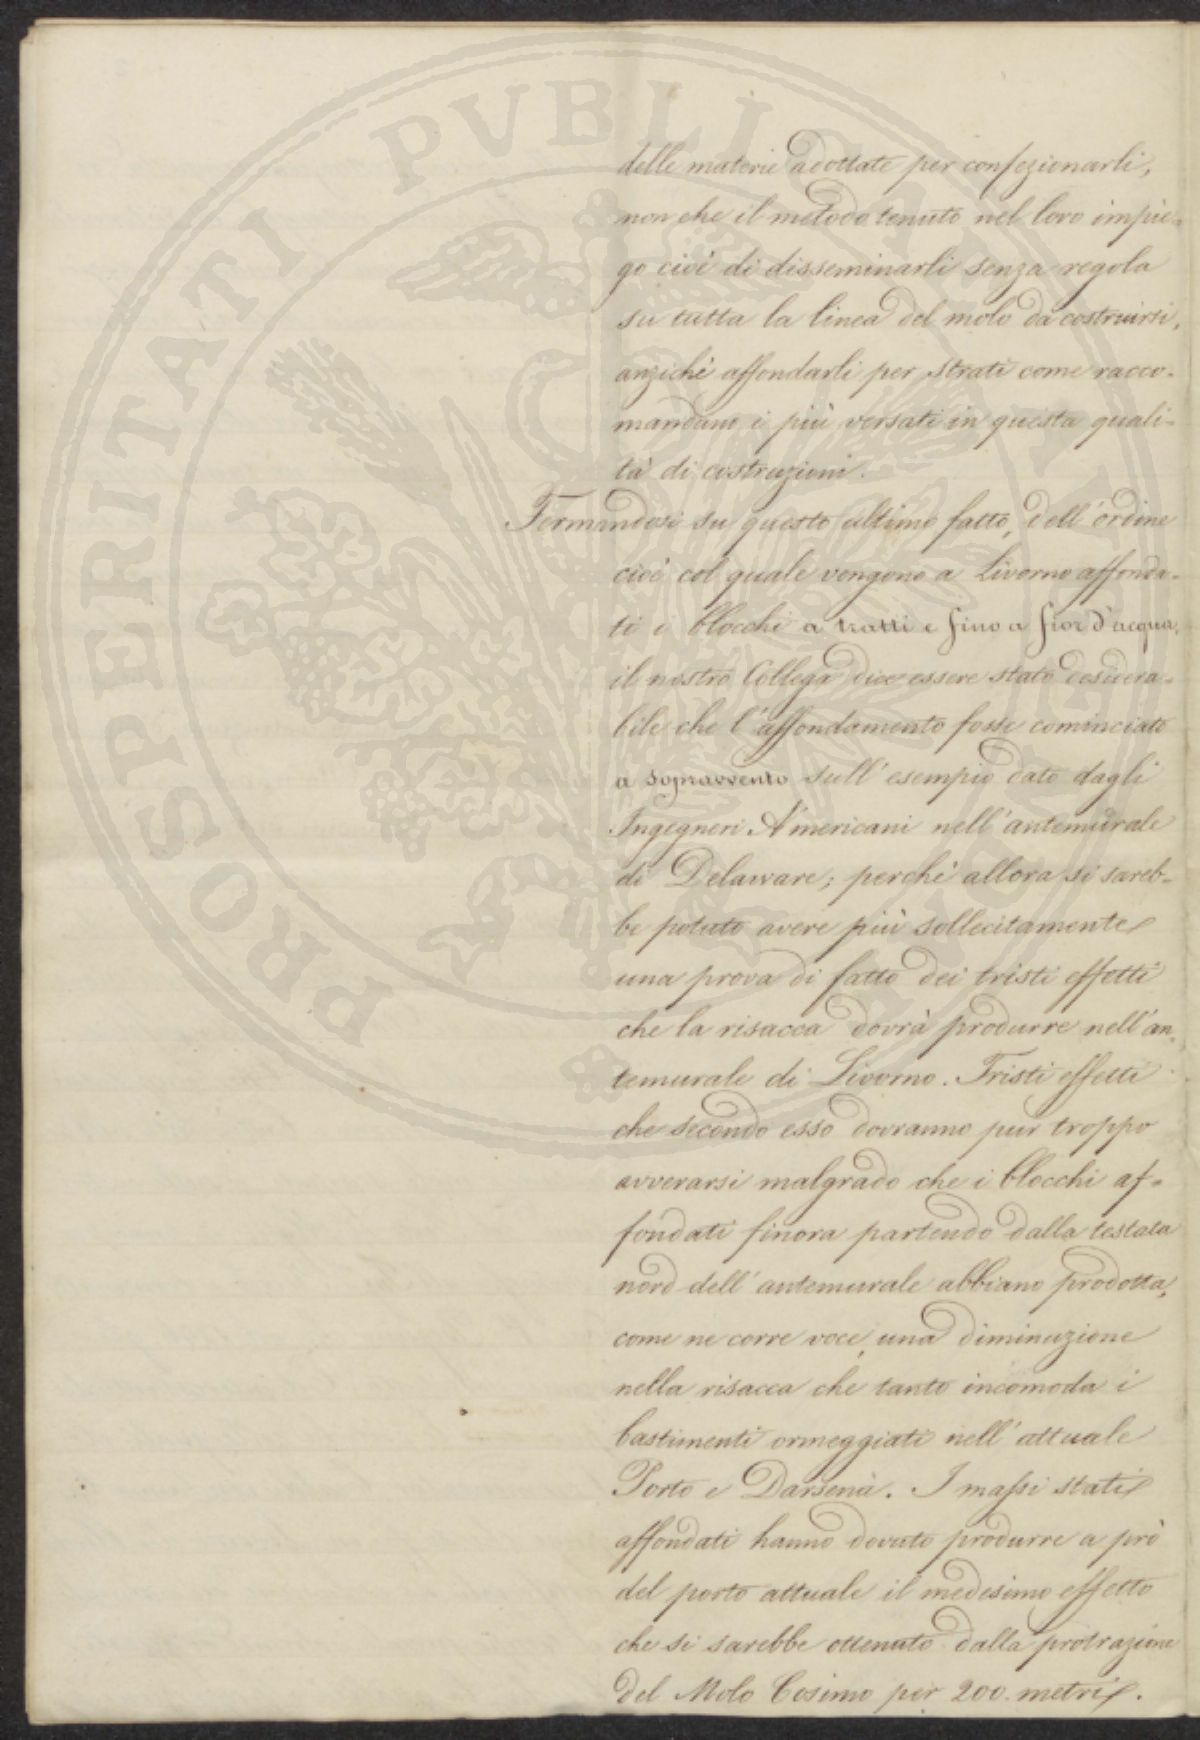 delle materie adottate per confezionarli,
non che il metodo tenuto nel loro impie-
go cioè di disseminarli senza regola
su tutta la linea del molo da costruirsi,
anzichè affondarli per strati come racco-
mandano i più versati in questa quali-
tà di costruzioni.
Fermandosi su questo ultimo fatto, dell'ordine
cioè col quale vengono a Livorno affonda-
ti i blocchi a tratti e fino a fior d'acqua,
il nostro Collega dice essere stato desidera-
bile che l'affondamento fosse cominciato
a sopravvento sull'esempio dato dagli
Ingegneri Americani nell'antemurale
di Delaware; perchè allora si sareb-
be potuto avere più sollecitamente
una prova di fatto dei tristi effetti
che la risacca dovrà produrre nell'an-
temurale di Livorno. Tristi effetti
che secondo esso dovranno pur troppo
avverarsi malgrado che i blocchi af-
fondati finora partendo dalla testata
nord dell'antemurale abbiano prodotta,
come ne corre voce, una diminuzione
nella risacca che tanto incomoda i
bastimenti ormeggiati nell'attuale
Porto e Darsena. I massi stati
affondati hanno dovuto produrre a prò
del porto attuale il medesimo effetto
che si sarebbe ottenuto dalla protrazione
del Molo Cosimo per 200. metri.
PROSPERITATI PUBLICAE AUGENDAE